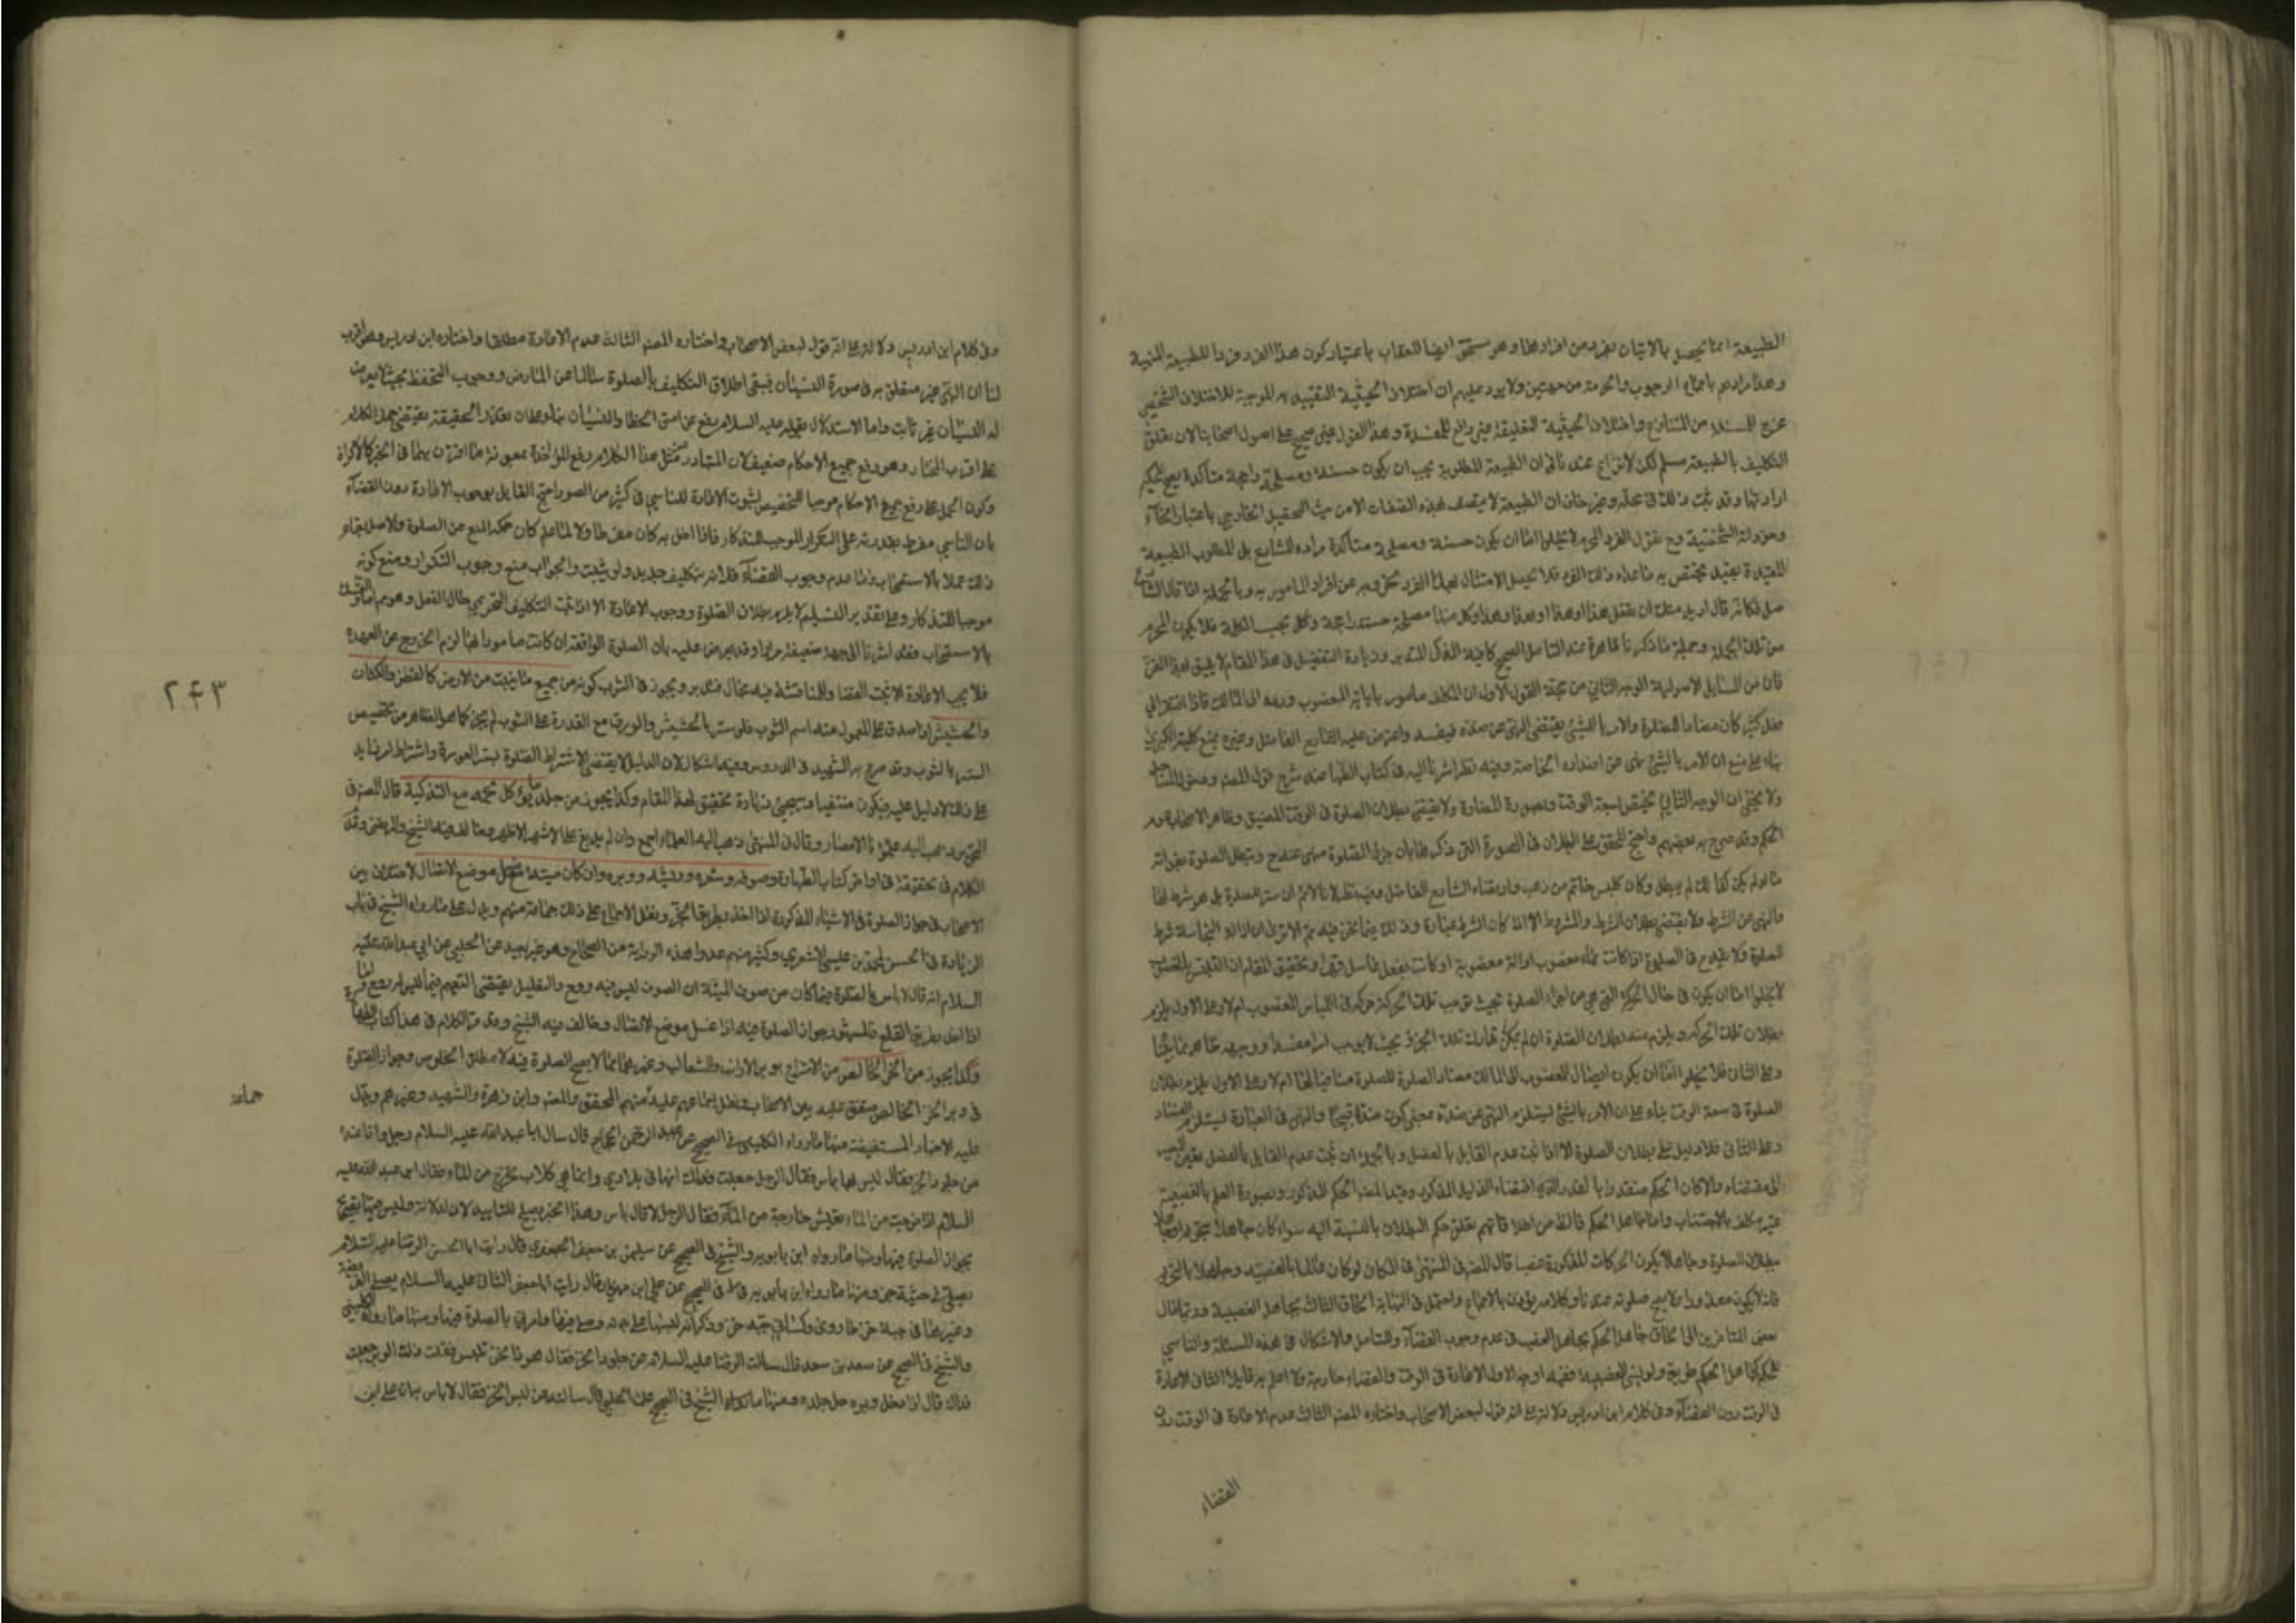 الطبيعة انما تحصل بالاتيان بفرد من افرادها وهو مستحق ايضا للعقاب باعتبار كون هذا الفرد فردا للطبيعة المنهية
وهذا مرادهم باجتماع الوجوب والحرمة من جهتين ولا يرد عليهم ان اختلاف الحيثية التقييدية الموجبة للاختلاف الشخصي
مخرج للمسئلة من المتنازع واختلاف الحيثية التعليلية غير رافع للمفسدة وهذا القول عندي صحيح على اصول اصحابنا لان تعلق
التكليف بالطبيعة مسلم لكن لا نزاع عندنا في ان الطبيعة المطلوبة يجب ان يكون حسنة ومصلحة راجحة متاكدة يصح للحكيم
ارادتها وقد ثبت ذلك في محله وغير خاف ان الطبيعة لا يتصف بهذه الصفات الا من حيث التحصيل الخارجي باعتبار انحاء
وجوداته الشخصية وح نقول الفرد المحرم لا يخلوا اما ان يكون حسنة ومصلحة متاكدة مراده للشارع بل المطلوب الطبيعة
المقيدة بقيد يختص به ما عداء ذلك الفرد فلا يحصل الامتثال بهذا الفرد لخروجه عن افراد المامور به وبالجملة اذا قال الشارع
صل فكانه قال اريد منك ان تفعل هذا او هذا او هذا وهذا وكل منها مصلحة حسنة راجحة وكل يجب الكلية فلا يكون المحرم
من تلك الجملة وجملة ما ذكرنا ظاهرة عند التامل الصحيح كافية الذكر للتدبر وزيادة التفصيل في هذا المقام لا يليق بهذا الفن
فان من المسايل الاصولية الوجه الثاني من حجة القول الاول ان المكلف مامور بابانة المغصوب ورده الى المالك فاذا افتقر الى
فعل كثير كان مضادا للصلوة والامر بالشيء يقتضي النهي عن ضده فيفسد واعترض عليه الشارح الفاضل وغيره بمنع كلية الكبرى
بناء على منع ان الامر بالشيء نهى عن اضداده الخاصة وفيه نظر اشرنا اليه في كتاب الطهارة عند شرح قول المصنف
ولا يخفى ان الوجه الثاني يختص بسعة الوقت وبصورة المضادة ولا يقتضي بطلان الصلوة في الوقت المضيق وظاهر الاصحاب عموم
الحكم وقد صرح به بعضهم واحتج المحقق على البطلان في الصورة التي ذكرها بان جزء الصلوة منهى عنه ح وتبطل الصلوة بفواته
ما لو لم يكن كذلك لم يبطل وكان كلبس خاتم من ذهب وارتضاه الشارح الفاضل وفيه نظر لانا لا نسلم ان ستر العورة جزء الصلوة بل هو شرط لها
والنهي عن الشرط ولا يقتضي بطلان الشرط والمشروط الا اذا كان الشرط عبادة وذلك فيما نحن فيه مم الا ترى ان ازالة النجاسة شرط
للصلوة ولا يقدح في الصلوة اذا كانت بماء مغصوب او الة مغصوبة او كانت بفعل غاسل قهرا وتحقيق المقام ان التلبس بالغصب
لا يخلوا اما ان يكون في حال الحركة التي هي من اجزاء الصلوة بحيث توجب تلك الحركة حركة في اللباس المغصوب ام لا وعلى الاول يلزم
بطلان تلك الحركة ويلزم منه بطلان الصلوة ان لم يمكن تدارك تلك الجزء بحيث لا يوجب امرا مفسدا ووجهه ظاهر مما يخفا
وعلى الثاني فلا يخلو اما ان يكون ايصال المغصوب الى المالك مضاد الصلوة للصلوة منافيا لها ام لا وعلى الاول يلزم بطلان
الصلوة في سعة الوقت بناء على ان الامر بالشيء يستلزم النهي عن ضده بمعنى كون ضده قبيحا والنهي في العبادة يستلزم الفساد
وعلى الثاني فلا دليل على بطلان الصلوة الا اذا ثبت عدم القايل بالفصل وبالجملة ان ثبت عدم القايل بالفصل تعين المصير
الى مقتضاه والا كان الحكم منقدرا بالقدر الذي اقتضاه الدليل المذكور وقيد المصنف الحكم المذكور بصورة العلم بالغصبية
غير مكلف بالاجتناب واما جاهل الحكم فالظ من اطلاقاتهم تعلق حكم البطلان بالنسبة اليه سواء كان جاهلا بتحريم
بطلان الصلوة وجاهلا يكون الحركات المذكورة غصبا قال المصنف في المنتهى في المكان لو كان عالما بالغصبية وجاهلا بالتحريم
فانه لا يكون معذورا ولا يصح صلوته عندنا وكلامه يؤذن بالاجماع واحتمل في النهاية الحاق الثالث بجاهل الغصبية وربما مال
بعض المتاخرين الى الحاق جاهل الحكم بجاهل الغصب في عدم وجوب القضاء وللتامل والاشكال في هذه المسئلة والناسي
للحكم كجاهل الحكم طريق ولو نسي الغصبية ففيه اوجه الاول الاعادة في الوقت والقضاء خارجه ولا اعلم به قايلا الثاني الاعادة
في الوقت دون القضاء وفي كلام ابن ادريس دلالة على انه قول لبعض الاصحاب واختاره المصنف الثالث عدم الاعادة في الوقت
القضاء
وفي كلام ابن ادريس دلالة على انه قول لبعض الاصحاب واختاره المصنف الثالث عدم الاعادة مطلقا واختاره ابن ادريس وهو اقرب
لنا ان النهى غير متعلق به في صورة النسيان فيبقى اطلاق التكليف بالصلوة سالما عن المعارض ووجوب التحفظ بحيث لا يعرض
له النسيان غير ثابت واما الاستدلال بقوله عليه السلام رفع عن امتي الخطا والنسيان بناء على ان تعذر الحقيقة يقتضي حمل الكلام
على اقرب المجازات وهو رفع جميع الاحكام ضعيف لان المتبادر من مثل هذا الكلام رفع المؤاخذة بمعونة ما اقترن بهما في الخبر كالاكراه
وكون الحمل على رفع جميع الاحكام موجبا للتخصيص لثبوت الاعادة للناسي في كثير من الصور احتج القايل بوجوب الاعادة دون القضاء
بان الناسي مفرط بقدرته على التكرار الموجب للتذكار فاذا اخل به كان مفرطا ولانه لما علم كان حكمه المنع عن الصلوة والاصل بقاء
ذلك عملا بالاستصحاب واما عدم وجوب القضاء فلانه تكليف جديد ولم يثبت والجواب منع وجوب التكرار ومنع كونه
موجبا للتذكار وعلى تقدير التسليم لا يلزم بطلان الصلوة ووجوب الاعادة الا اذا ثبت التكليف التحريمي حال الفعل وهو مم
بالاستصحاب فقد اشرنا الى وجه ضعيفة مرارا وقد يعترض عليه بان الصلوة الواقعة ان كانت مامورا بها لزم الخروج عن العهدة
فلا يجب الاعادة الا يجب القضا وللمناقشة فيه مجال فتدبر ويجوز في الثوب كونه من جميع ما ينبت من الارض كالقطن والكتان
والحشيش اذا صدق على المعمول منه اسم الثوب فلو ستر بالحشيش والورق مع القدرة على الثوب لم يجز كما هو الظاهر من تخصيص
الستر بالثوب وقد صرح به الشهيد في الدروس وفيه اشكال لان الدليل لا يقتضي الا اشتراط الصلوة بستر العورة واشتراط امر زايد
على ذلك لا دليل عليه فيكون منتفيا وسيجيئ زيادة تحقيق لهذا المقام وكذا يجوز من جلد ما يؤكل لحمه مع التذكية قال المصنف في
ذهب اليه علماؤنا الامصار وقال في المنتهى ذهب اليه العلماء اجمع وان لم يدبغ على الاشهر الاظهر وخالف فيه الشيخ والمرتضى وقد
الكلام في تحقيقه في اواخر كتاب الطهارة وصوفه وشعره وريشه ووبره وان كان ميتة مع غسل موضع الاتصال لا خلاف بين
الاصحاب في جواز الصلوة في الاشياء المذكورة اذا اخذ بطريق الجز ونقل الاجماع على ذلك جماعة منهم ويدل عليه ما رواه الشيخ في باب
الزيادة في الحسن لمحمد بن عيسى الاشعري وكثير منهم عدوا هذه الرواية من الصحاح وهو غير بعيد عن الحلبي عن ابي عبد الله عليه
السلام انه قال لا باس بالصلوة فيما كان من صوف الميتة ان الصوف ليس فيه روح والتعليل يقتضي التعميم فيما ليس له روح
اذا اخذ بطريق القلع فالمشهور جواز الصلوة فيه اذا غسل موضع الاتصال وخالف فيه الشيخ وقد مر الكلام في هذا كتاب الطهارة
وكذا يجوز من الخز الخالص من الامتزاج بوبر الارانب والثعالب وغيرهما مما لا يصح الصلوة فيه لا مطلق الخلوص وجواز الصلوة
في وبر الخز الخالص متفق عليه بين الاصحاب ونقل اجماعهم عليه منهم المحقق والمصنف وابن زهرة والشهيد وغيرهم ويدل
جماعة
عليه الاخبار المستفيضة منها ما رواه الكليني في الصحيح عن عبد الرحمن بن الحجاج قال سال ابا عبد الله عليه السلام رجل وانا عنده
من جلود الخز فقال ليس بها باس فقال الرجل جعلت فداك انها في بلادي وانما هي كلاب تخرج من الماء فقال ابو عبد الله عليه
السلام اذا خرجت من الماء تعيش خارجة من الماء فقال الرجل لا قال لا باس وهذا الخبر يصلح للتاييد لان لدلالة وليس
بجواز الصلوة فيها ومنها ما رواه ابن بابويه والشيخ في الصحيح عن سليمن بن جعفر الجعفري قال رايت ابا الحسن الرضا عليه السلام
يصلي في جبة خز ومنها ما رواه ابن بابويه في الصحيح عن علي ابن مهزيار قال رايت ابا جعفر الثاني عليه السلام يصلي الفريضة
وغيرها في جبة خز طاروى وكساني جبة خز وذكر انه لبسها على بدنه وصلى فيها وامرني بالصلوة فيها ومنها ما رواه الكليني
والشيخ في الصحيح عن سعد بن سعد قال سالت الرضا عليه السلام عن جلود الخز فقال هو ذا نحن نلبس فقلت ذاك الوبر جعلت
فداك قال اذا حل وبره حل جلده ومنها ما رواه الشيخ في الصحيح عن الحلبي قال سالته عن لبس الخز فقال لا باس به ان علي ابن
٢٤٣